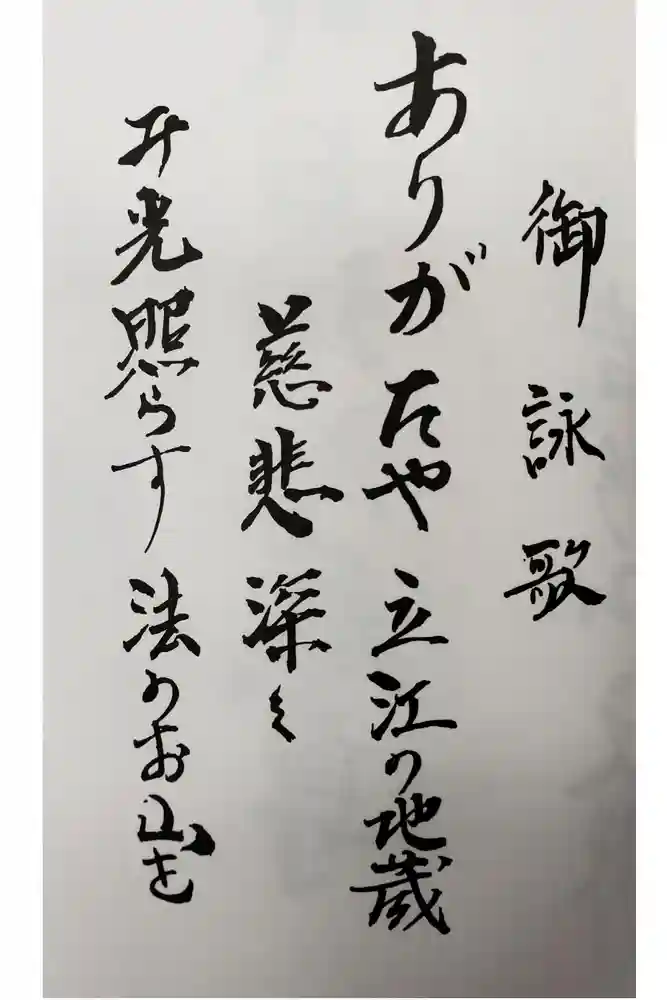 御詠歌
ありがたや立江の地蔵
慈悲深き
み光照らす法のお山を